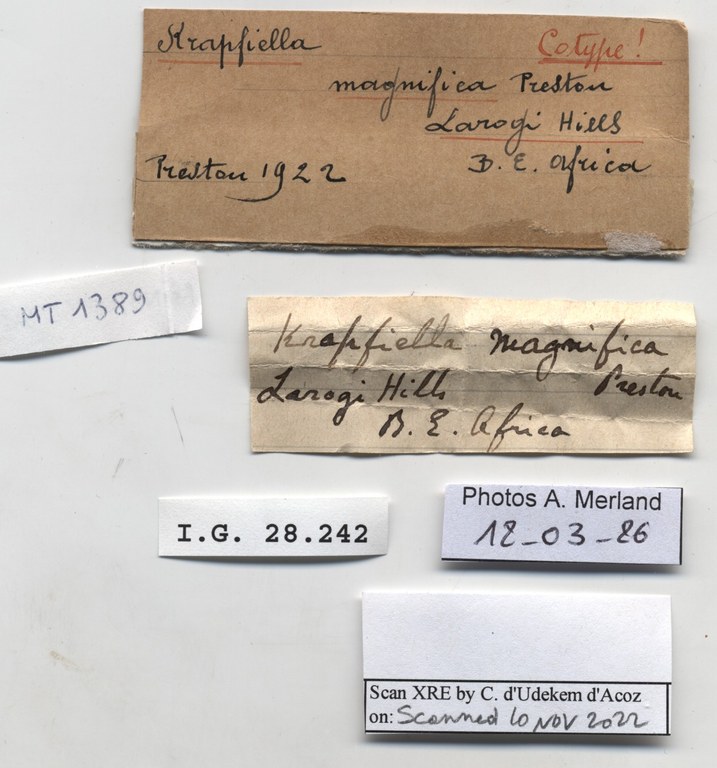 Krapfiella Cotype!
magnifica Preston
Larogi Hills
Preston 1922 B. E. Africa
MT 1389
Krapfiella magnifica
Larogi Hills Preston
B. E. Africa
I.G. 28.242
Photos A. Merland
12-03-86
Scan XRE by C. d'Udekem d'Acoz
on: Scanned 10 NOV 2022